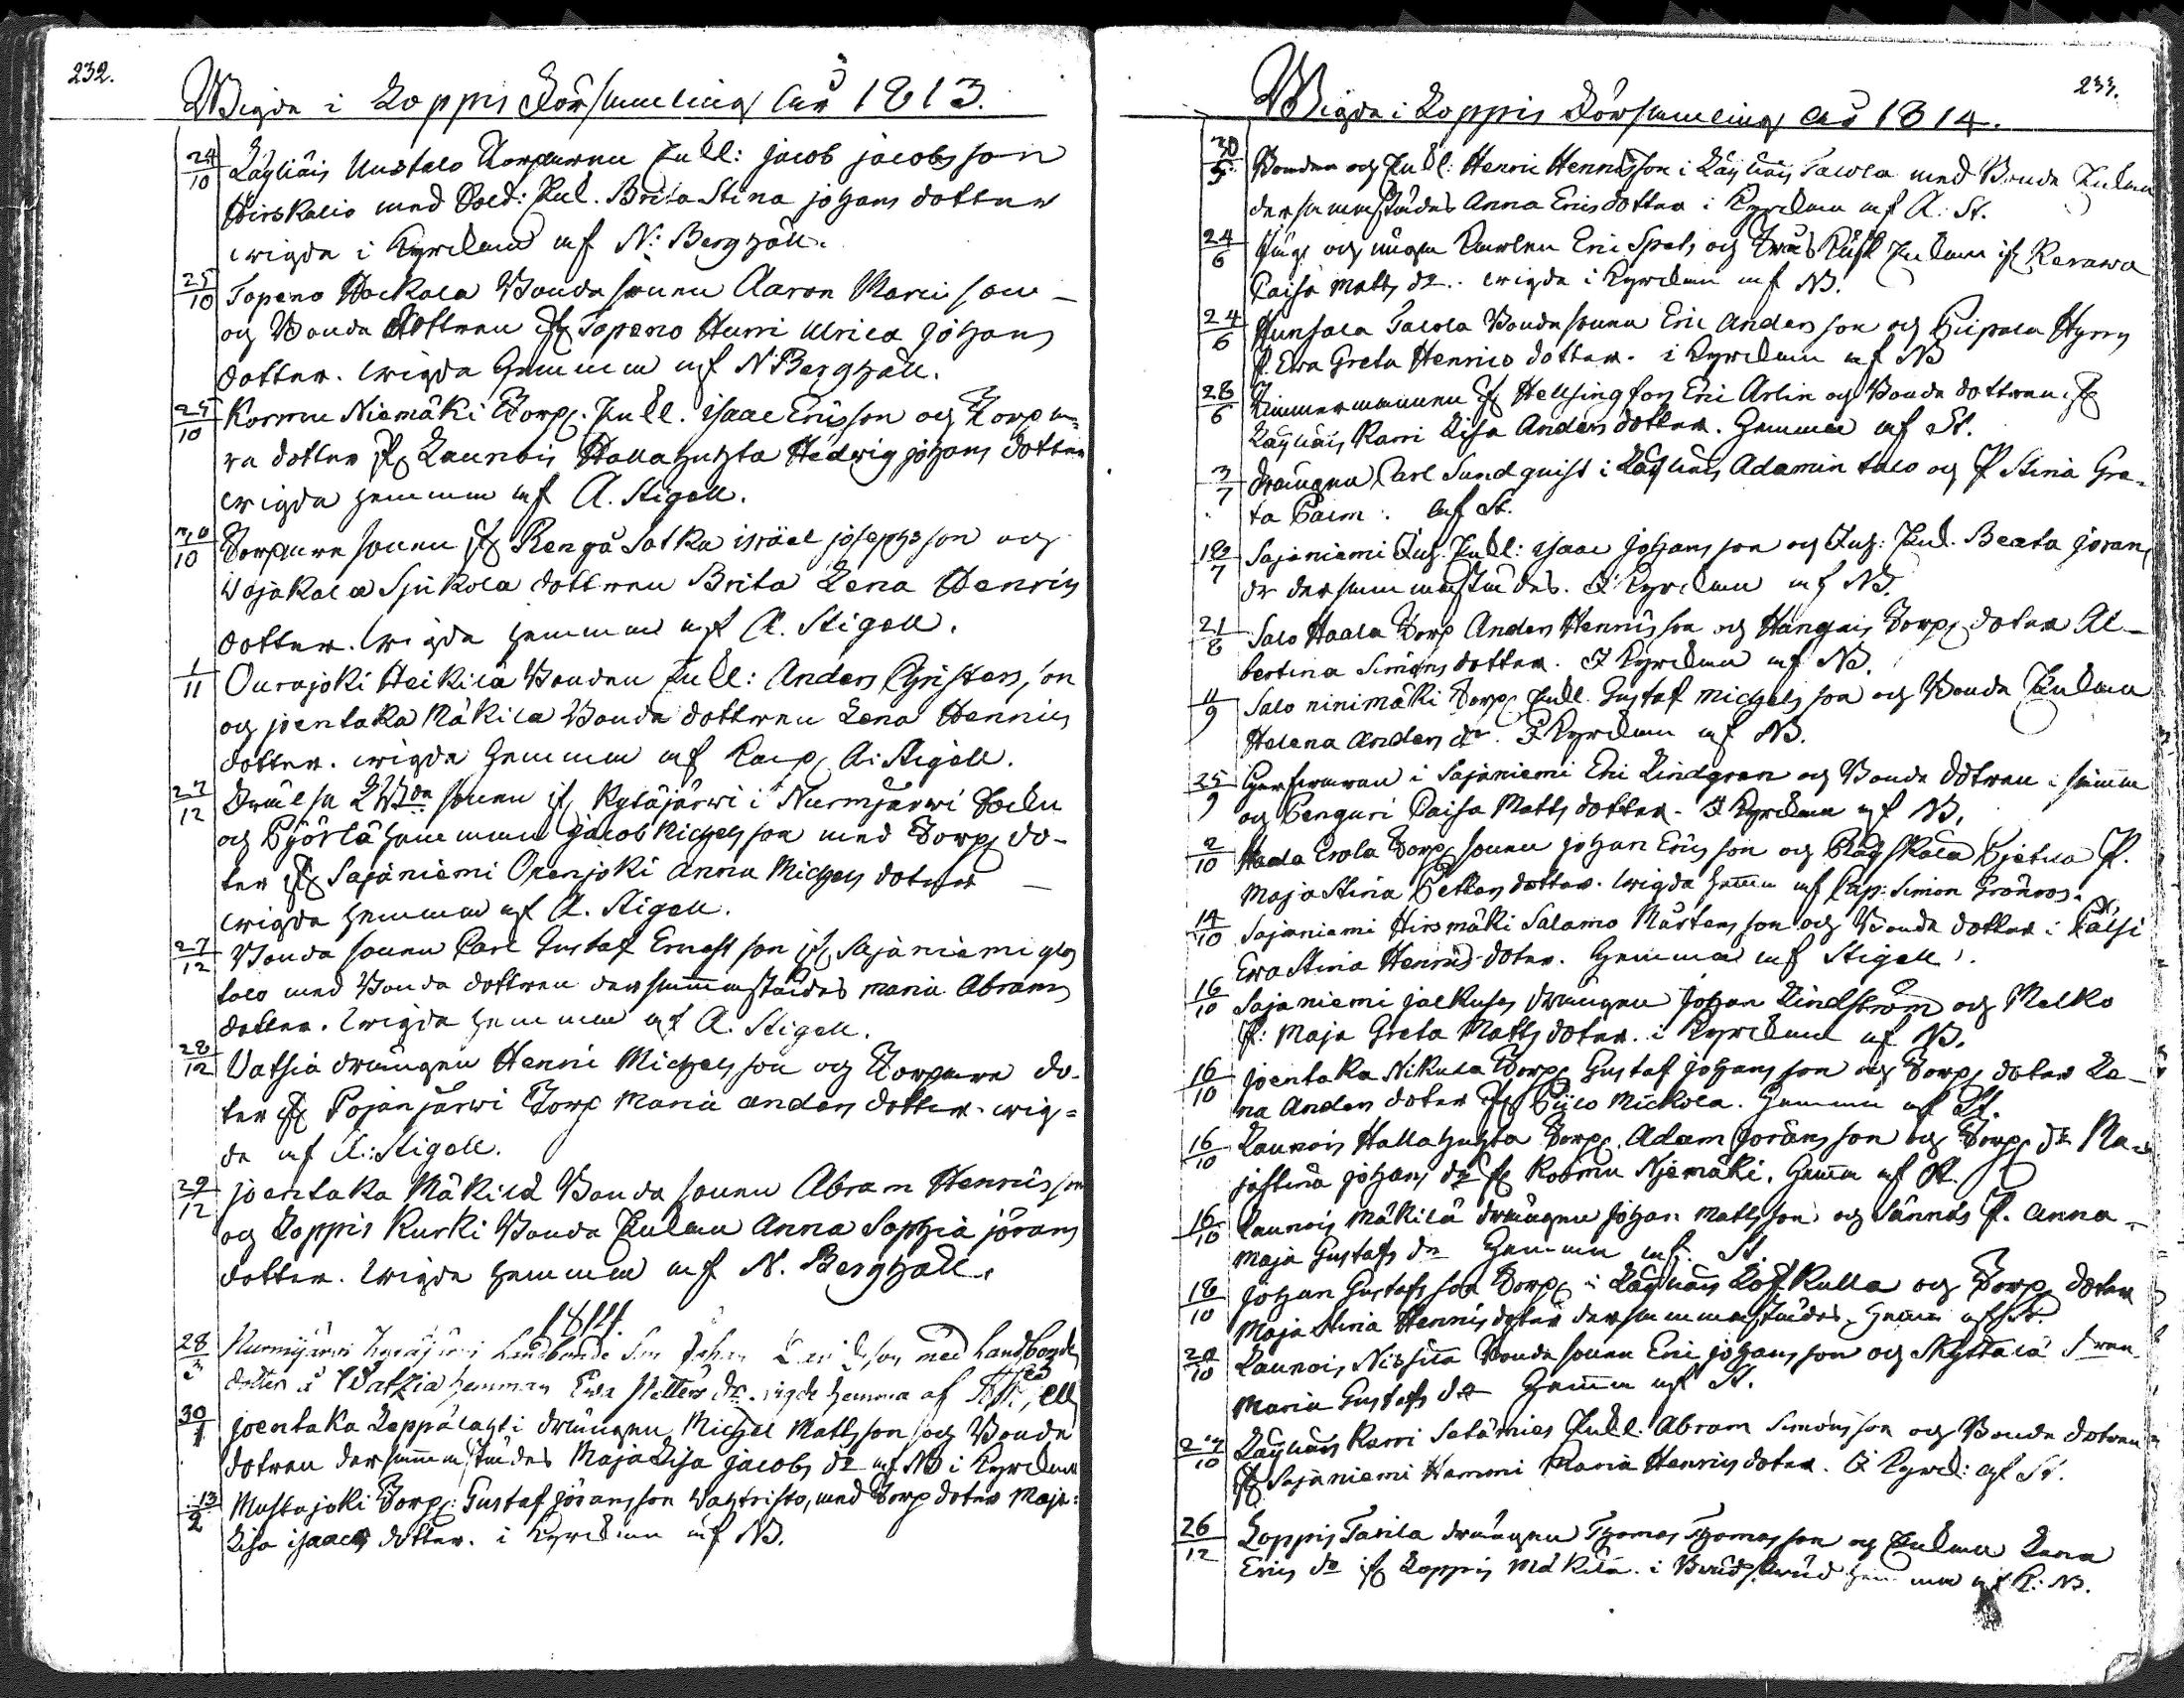 232.
Wigda i Loppis Församling år 1813.
24/10 Läyliäis Uustalo Torparen Enkl: Jacob Jacobsson
Hirskalio med Sold: Enk. Brita Stina Johans dotter
wigda i Kyrckan af N: Berghäll.
25/10 Topeno Hockala Bonda sonen Aaron Marcisson
och Bonde Dottren fr Topeno Hurri Ulrica Johans
dotter. wigda hemma af N Berghäll.
25/10 Kormu Niemäki Torp. Enkl. Isaac Ericsson och Torpa=
re dotter fr Launois Hallahuhta Hedvig Johans dotter
wigda hemma af A. Stigell.
10 Torpare sonen fr Rengå Satka Israel Josephsson och
Wojakala Sjukola dottren Brita Lena Henrics
dotter. wigda hemma af A. Stigell.
1/11 Ourajoki Heikilä Bonden Enkl: Anders Christersson
och Joentaka Mäkilä Bonde dottren Lena Henrics
dotter. wigda hemma af Cap. A: Stigell.
27/12 sonen ifr Kytäjärwi i Nurmijärwi Sockn
och hemman Jacob Michelsson med Torp. do-
ter ifr Sajaniemi Orenjoki Anna Michels doter
wigda hemma af A. Stigell.
27/12 Bonda sonen Carl Gustaf Ernstsson ifr Sajaniemi
talo med Bonda dottren dersammastädes Maria Abrams
dotter. wigda hemma af A. Stigell.
28/12 Vatsia drängen Henric Michelsson och Torpare do-
ter fr Pojanjärwi Torp Maria Anders dotter. wig=
da af A: Stigell.
29/12 Joentaka Mäkilä Bonda sonen Abram Henricsson
och Loppis Kurki Bonda Enkan Anna Sophia Jörans
dotter. wigda hemma af N. Berghäll.
1814.
28/3 Nurmijärwi Kytäjärwi Landbonde Son Johan med Landbonde
dotter i Watzia hemman Ewa Petters dr. wigde hemma af
30/1 Joentaka Leppälahti drängen Michel Mattsson och Bonde
dotren dersammastädes Maja Lisa Jacobs dr af NB i Kyrckan
13/2 Mustajoki Torp: Gustaf Jöransson Wahtristo, med Torp doter Maja
Lisa Isaacs dotter. i Kyrckan af NB.
233.
Wigda i Loppis Församling år 1814.
30/5 Bonden och Enkl: Henric Henricsson i Läyliäis Tawola med Bonde Enkan
dersammastädes Anna Erics dotter i Kyrckan af A: St.
24/6 och unga Karlen Eric Spets och Enkan ifr Kerawa
Caisa Matts dr.. wigda i Kyrckan af NB.
24/6 Hunsala Talola Bonde sonen Eric Andersson och Piipala Hyrry
P. Ewa Greta Henrics dotter. i Kyrckan af NB
28/6 Timmermannen fr Hellsingfors Eric Arlin och Bonde dottren fr
Läyliäis Karri Lisa Anders dotter. Hemma af St.
3/7 drängen Carl Sundquist i Läyliäis Adamin talo och P. Stina Gre-
ta Palm. af St.
12/7 Sajaniemi Enkl: Isaac Johansson och Beata Jörans
dr dersammastädes. I Kyrckan af NB.
21/8 Salo Haala Torp Anders Henricsson och Hangais Torp. doter Al-
bertina Simons dotter. I Kyrckan af NB.
11/9 Salo Ninimäki Torp. Enkl. Gustaf Michelsson och Bonde Enkan
Helena Anders dr. I Kyrckan af NB.
25/9 Garfwaren i Sajaniemi Eric Lindgren och Bonde dotren i samma
och Penguri Caisa Matts dotter. I Kyrckan af NB.
2/10 Haala Torp. sonen Johan Ericsson och P.
Maja Stina Petters dotter. wigda hemma af Cap: Simon Grönros.
14/10 Sajaniemi Hirsmäki Salamo Mårtensson och Bonde dotter i Talsi
Ewa Stina Henrics doter. Hemma af Stigell.
16/10 Sajaniemi drängen Johan Lindström och Melko
P: Maja Greta Matts doter. i Kyrckan af NB.
16/10 Joentaka Nikula Torp. Gustaf Johansson och Torp. doter Le-
na Anders doter fr Pilo Mickola. Hemma af St.
16/10 Launois Hallahuhta Torp. Adam Joransson och Torp. dr Ma-
jastina Johans dr fr Kormu Njemäki. Hemma af St.
16/10 Launois Mäkilä drängen Johan Mattsson och P. Anna
Maja Gustafs dr Hemma af St.
18/10 Johan Gustafsson Torp. i Läyliäis och Torp. doter
Maja Stina Henrics doter dersammastädes. Hemma af St.
20/10 Launois Nissilä Bonde sonen Eric Johansson och Skyttälä
Maria Gustafs dr Hemma af St.
10 Läyliäis Karri Satamies Enkl. Abram Simonsson och Bonde dotren
fr Sajaniemi Hemmi Maria Henrics doter. I Kyrck: af St.
26/12 Loppis Tasila drängen Thomas Thomasson och Enkan Lena
Erics dr ifr Loppis Mäkilä. i hemma af NB.